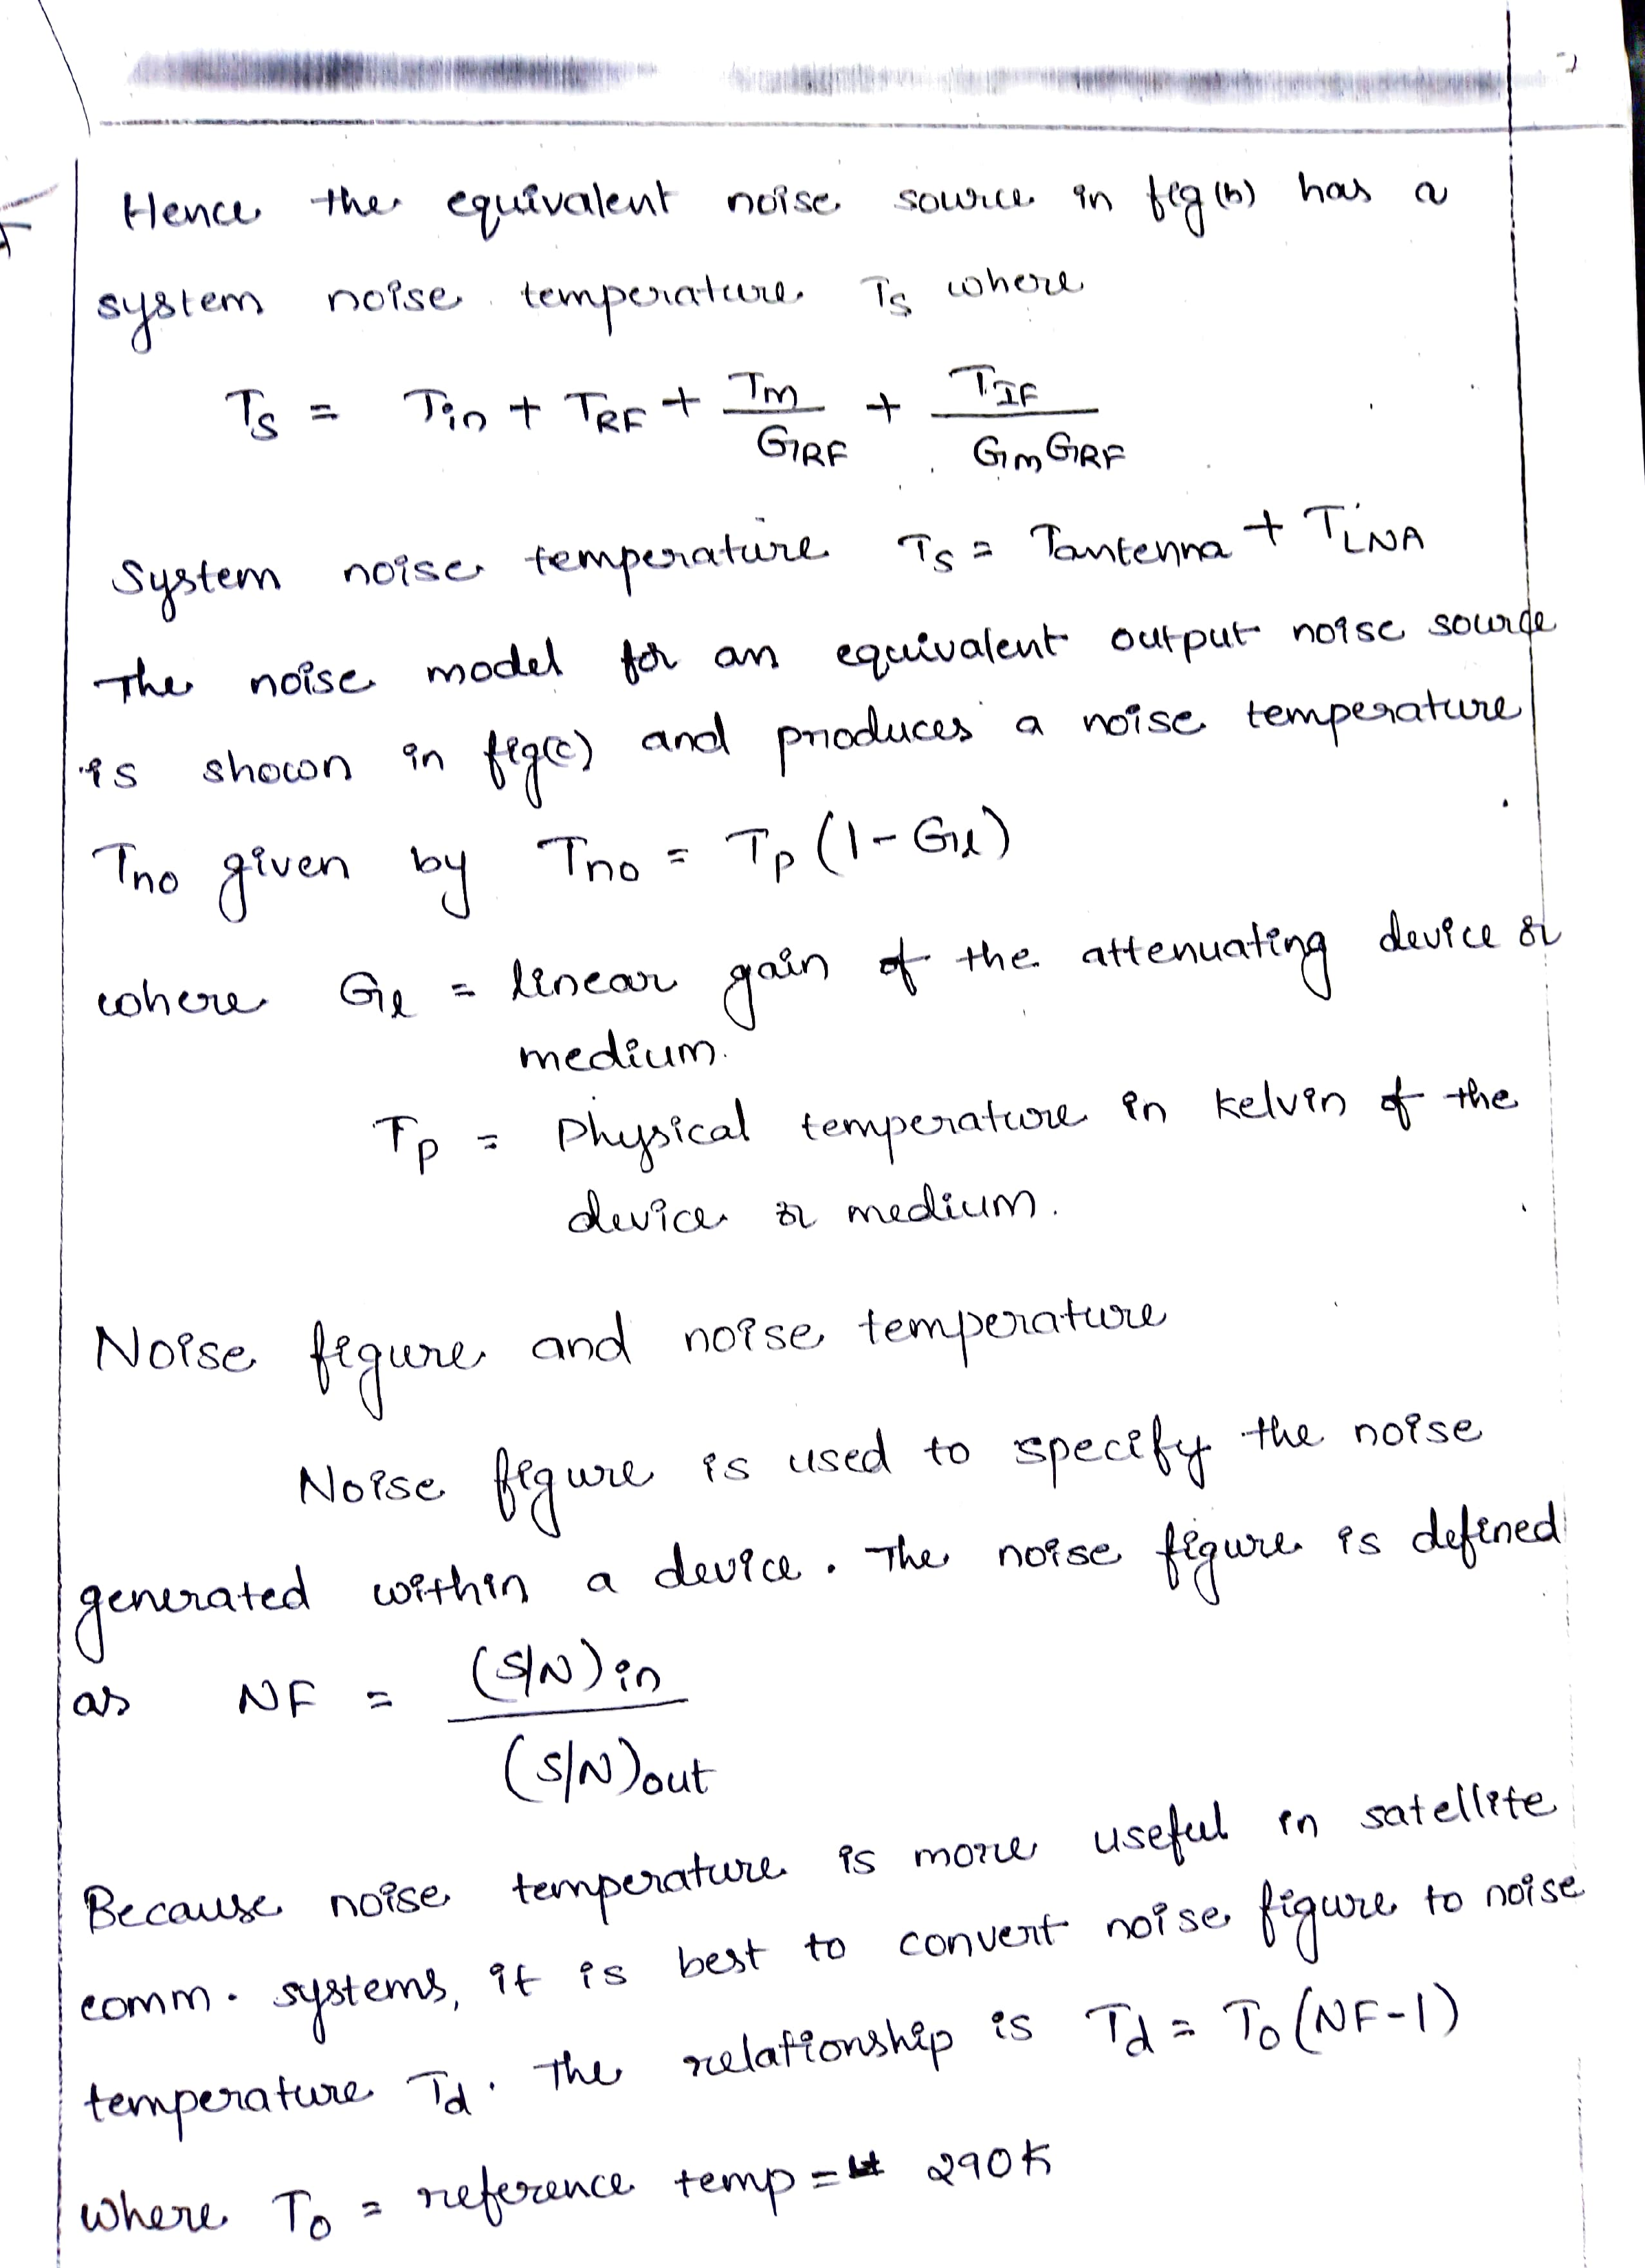 Hence the equivalent noise source in fig(b) has a
system noise temperature Ts where
Ts = Tin + TRF + Tm/GRF + TIF/GmGRF
System noise temperature Ts = Tantenna + TLNA
The noise model for an equivalent output noise source
is shown in fig(c) and produces a noise temperature
Tno given by Tno = Tp (1 - Gl)
where Gl = linear gain of the attenuating device or
medium.
Tp = Physical temperature in kelvin of the
device or medium.
Noise figure and noise temperature
Noise figure is used to specify the noise
generated within a device. The noise figure is defined
as NF = (S/N)in
(S/N)out
Because noise temperature is more useful in satellite
comm. systems, it is best to convert noise figure to noise
temperature Td. The relationship is Td = To (NF-1)
where To = reference temp = 290K